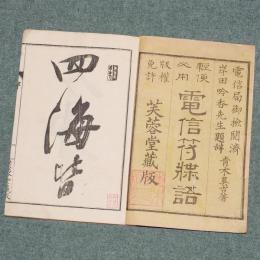 電信局御検閲済
岸田吟香先生題辞 青木
輕便
必用
電信符牒語
版權
免許
芙蓉堂藏版
四海皆